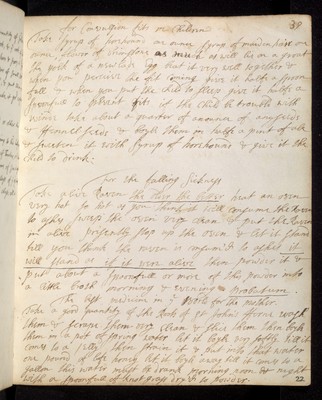 for Convulsion fits in Children
Take Syrop of horehound an ounce Syrop of maidenhair an
ounce, flower of brimstone as much as will lie on a groat
the yolk of a new laid Egg beat it very well together &
when you perceive the fit coming give it halfe a spoon
full & when you put the child to sleep give it halfe a
spoonfull to prevent fits if the child be trouble with
winde take about a quarter of an ounce of anyseeds
& fennell seeds & boyle them in halfe a pint of ale
& sweeten it with syrop of horehound & give it the
child to drink:
For the falling Sickness
Take alive Raven heat an oven
very hot so hot as you think will consume the Raven
to ashes sweep the oven very clean & put the Raven
in alive presently stop up the oven & let it stand
till you think the raven is consum'd to ashes it
will stand as if it were alive then powder it &
put about a spoonfull or more of the powder into
a little morning & evening Probatum
The best medicine in ye world for the mother
Take a good quantity of the Roots of wash
them & scrape them very clean & slice them thin boyle
them in a pot of spring water let it boyle very softly till it
comes to a jelly then strain it & put into that water
one pound of life honey let it boyle away till it comes to a
gallon this water must be drunk morning noon & night
with a spoonfull of dry'd to powder
22